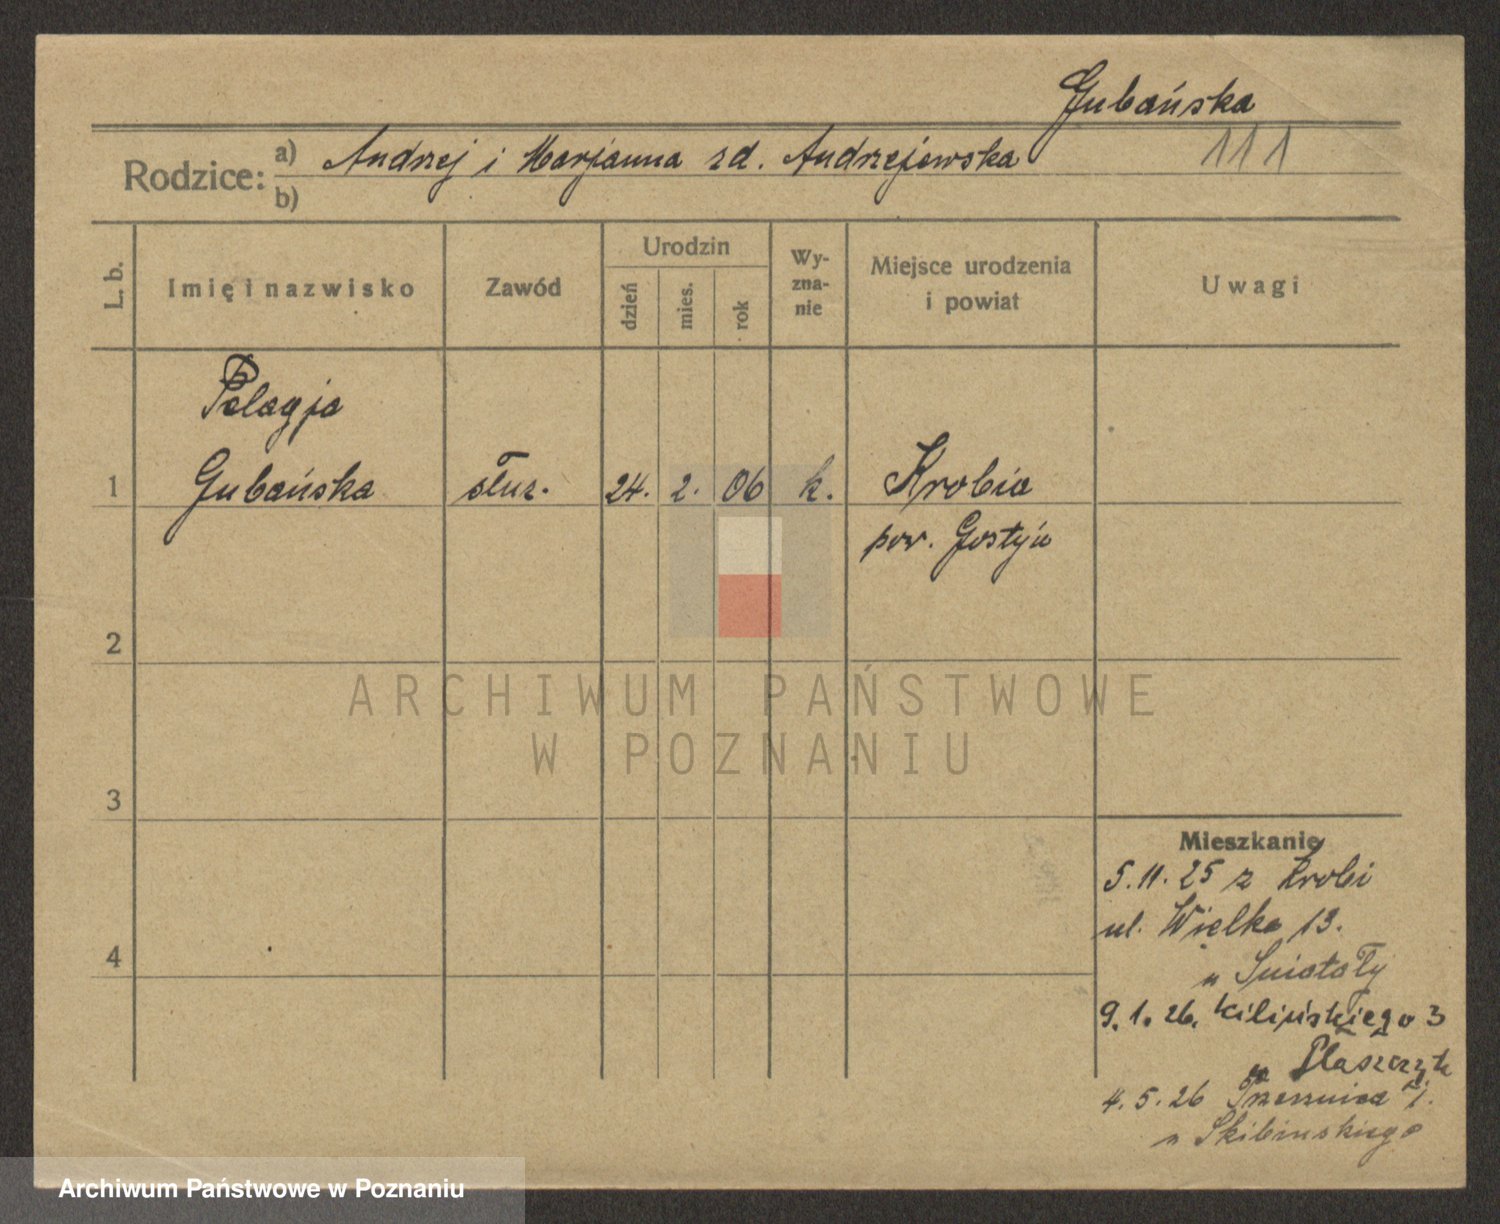 Gubańska
111
Rodzice: a) Andrzej i Marjanna zd. Andrzejewska
b)
L. b.
Imię i nazwisko
Zawód
Urodzin
dzień
mies.
rok
Wy-
zna-
nie
Miejsce urodzenia
i powiat
Uwagi
Pelagja
1 Gubańska służ. 24. 2. 06 k. Krobia
pow. Gostyń
2
ARCHIWUM PAŃSTWOWE
W POZNANIU
3
Mieszkanie
5.11.25 z Krobi
ul. Wielka 13.
u
4
9.1.26. Kilińskiego 3
4.5.26
u Skibinskiego
Archiwum Państwowe w Poznaniu